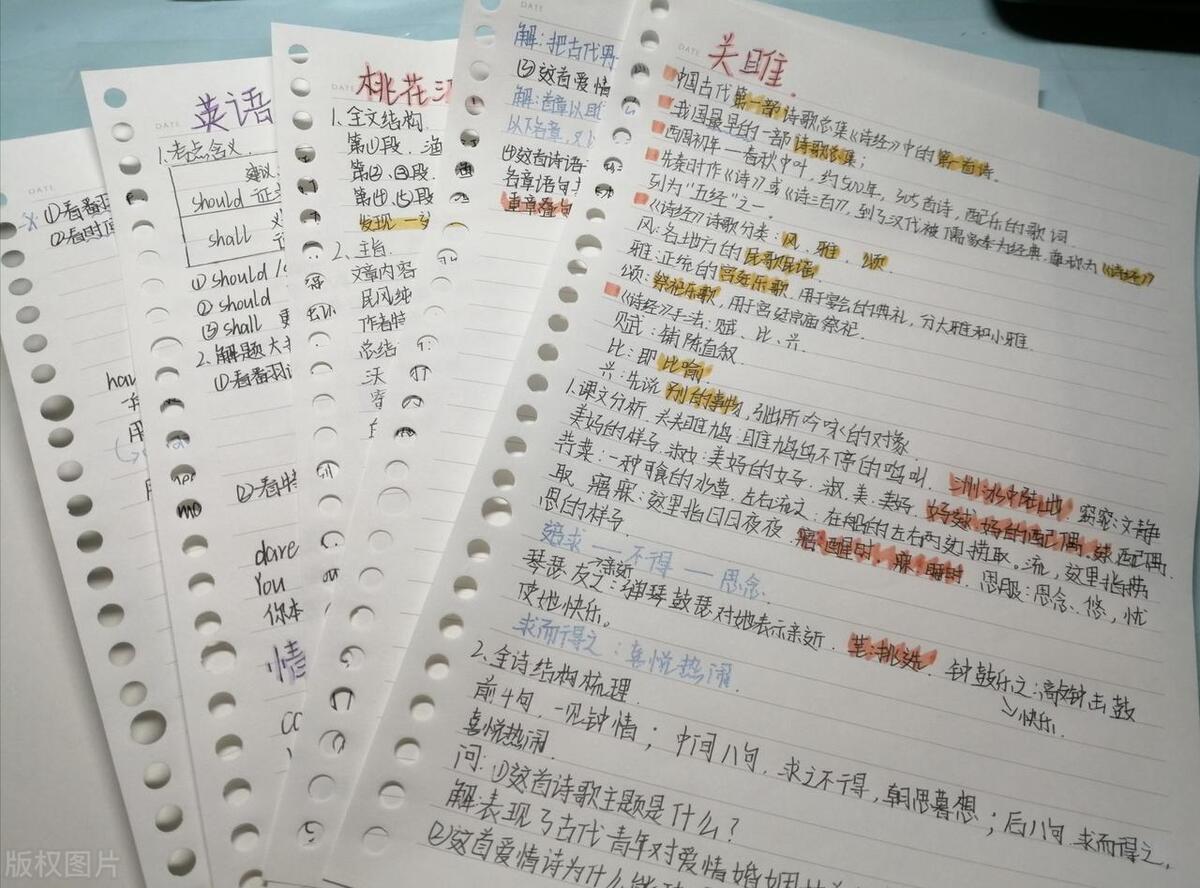 DATE
①看番
②看时
hav
用
DATE
英语
1.考点含义
建议
should
shall
①should
②should
③shall
2.解题大
①看番羽
②看
dare
You
你本
情
DATE
桃花
1、全文结构
第①段
第②、③段
第④、⑤段
发现
2、主旨
文章内容
民风纯
作者
总结
沃
寄
DATE
解:把古代男
③这首爱情
解:首章以
以下各章,又
④这首诗语
各章语句
重章叠句
DATE
关雎.
中国古代第一部诗歌总集《诗经》中的第一首诗.
我国最早的一部诗歌总集;
西周初年——春秋中叶,约500年,305首诗,配乐的歌词.
先秦时作《诗》或《诗三百》,到了汉代被儒家奉为经典,尊称为《诗经》
列为"五经"之一.
《诗经》诗歌分类:风、雅、颂
风:各地方的民歌民谣
雅:正统的宫廷乐歌,用于宴会的典礼,分大雅和小雅.
颂:祭祀乐歌,用于宫廷宗庙祭祀.
《诗经》手法:赋、比、兴.
赋:铺陈直叙
比:即比喻
兴:先说别的事物,引出所吟咏的对象.
1.课文分析.关关雎鸠:雎鸠鸟不停的鸣叫.洲:水中陆地.窈窕:文静
美好的样子.淑女:美好的女子.淑.美.美好.好逑:好的配偶.逑.配偶.
荇菜:一种可食的水草.左右流之:在船的左右两边捞取.流,这里指捞
取.寤寐:这里指日日夜夜.寤:醒时.寐:睡时.思服:思念、悠,忧
思的样子.
追求——不得——思念.
→亲近
琴瑟友之:弹琴鼓瑟对她表示亲近.芼:挑选.钟鼓乐之:敲钟击鼓
使她快乐。
→快乐.
求而得之:喜悦热闹.
2、全诗结构梳理
前4句,一见钟情;中间八句,求之不得,朝思暮想;后八句.求而得之,
喜悦热闹
问:①这首诗歌主题是什么?
解:表现了古代青年对爱情婚姻
②这首爱情诗为什么
版权图片